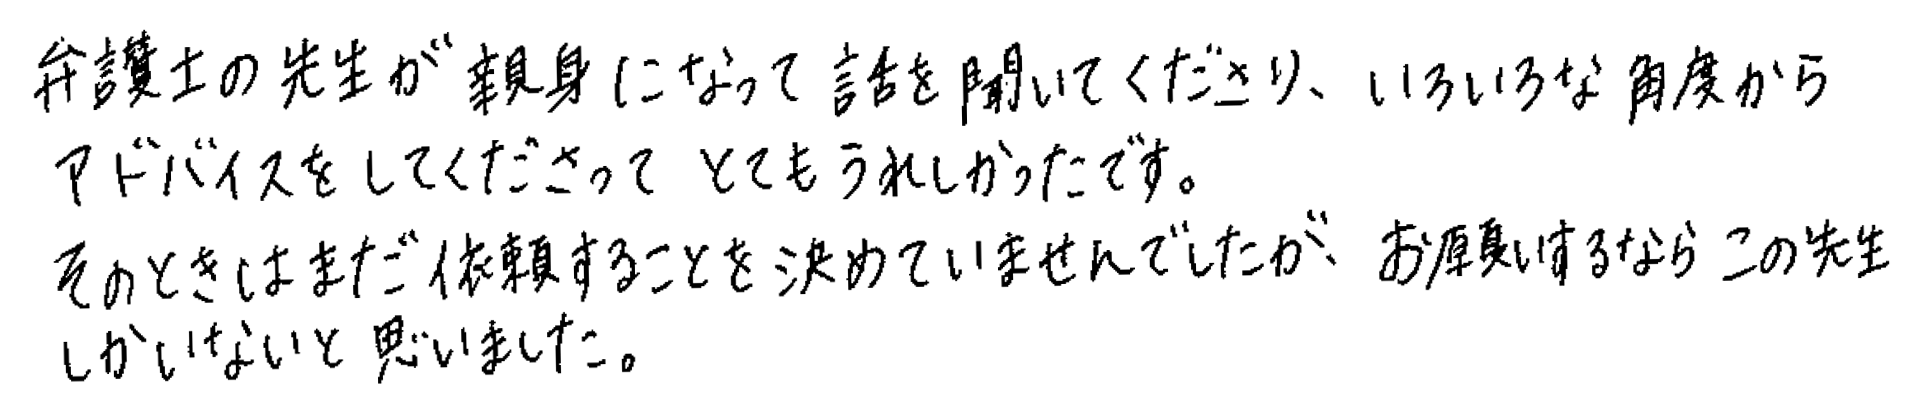 弁護士の先生が親身になって話を聞いてくださり、いろいろな角度から
アドバイスをしてくださってとてもうれしかったです。
そのときはまだ依頼することを決めていませんでしたが、お願いするならこの先生
しかいないと思いました。